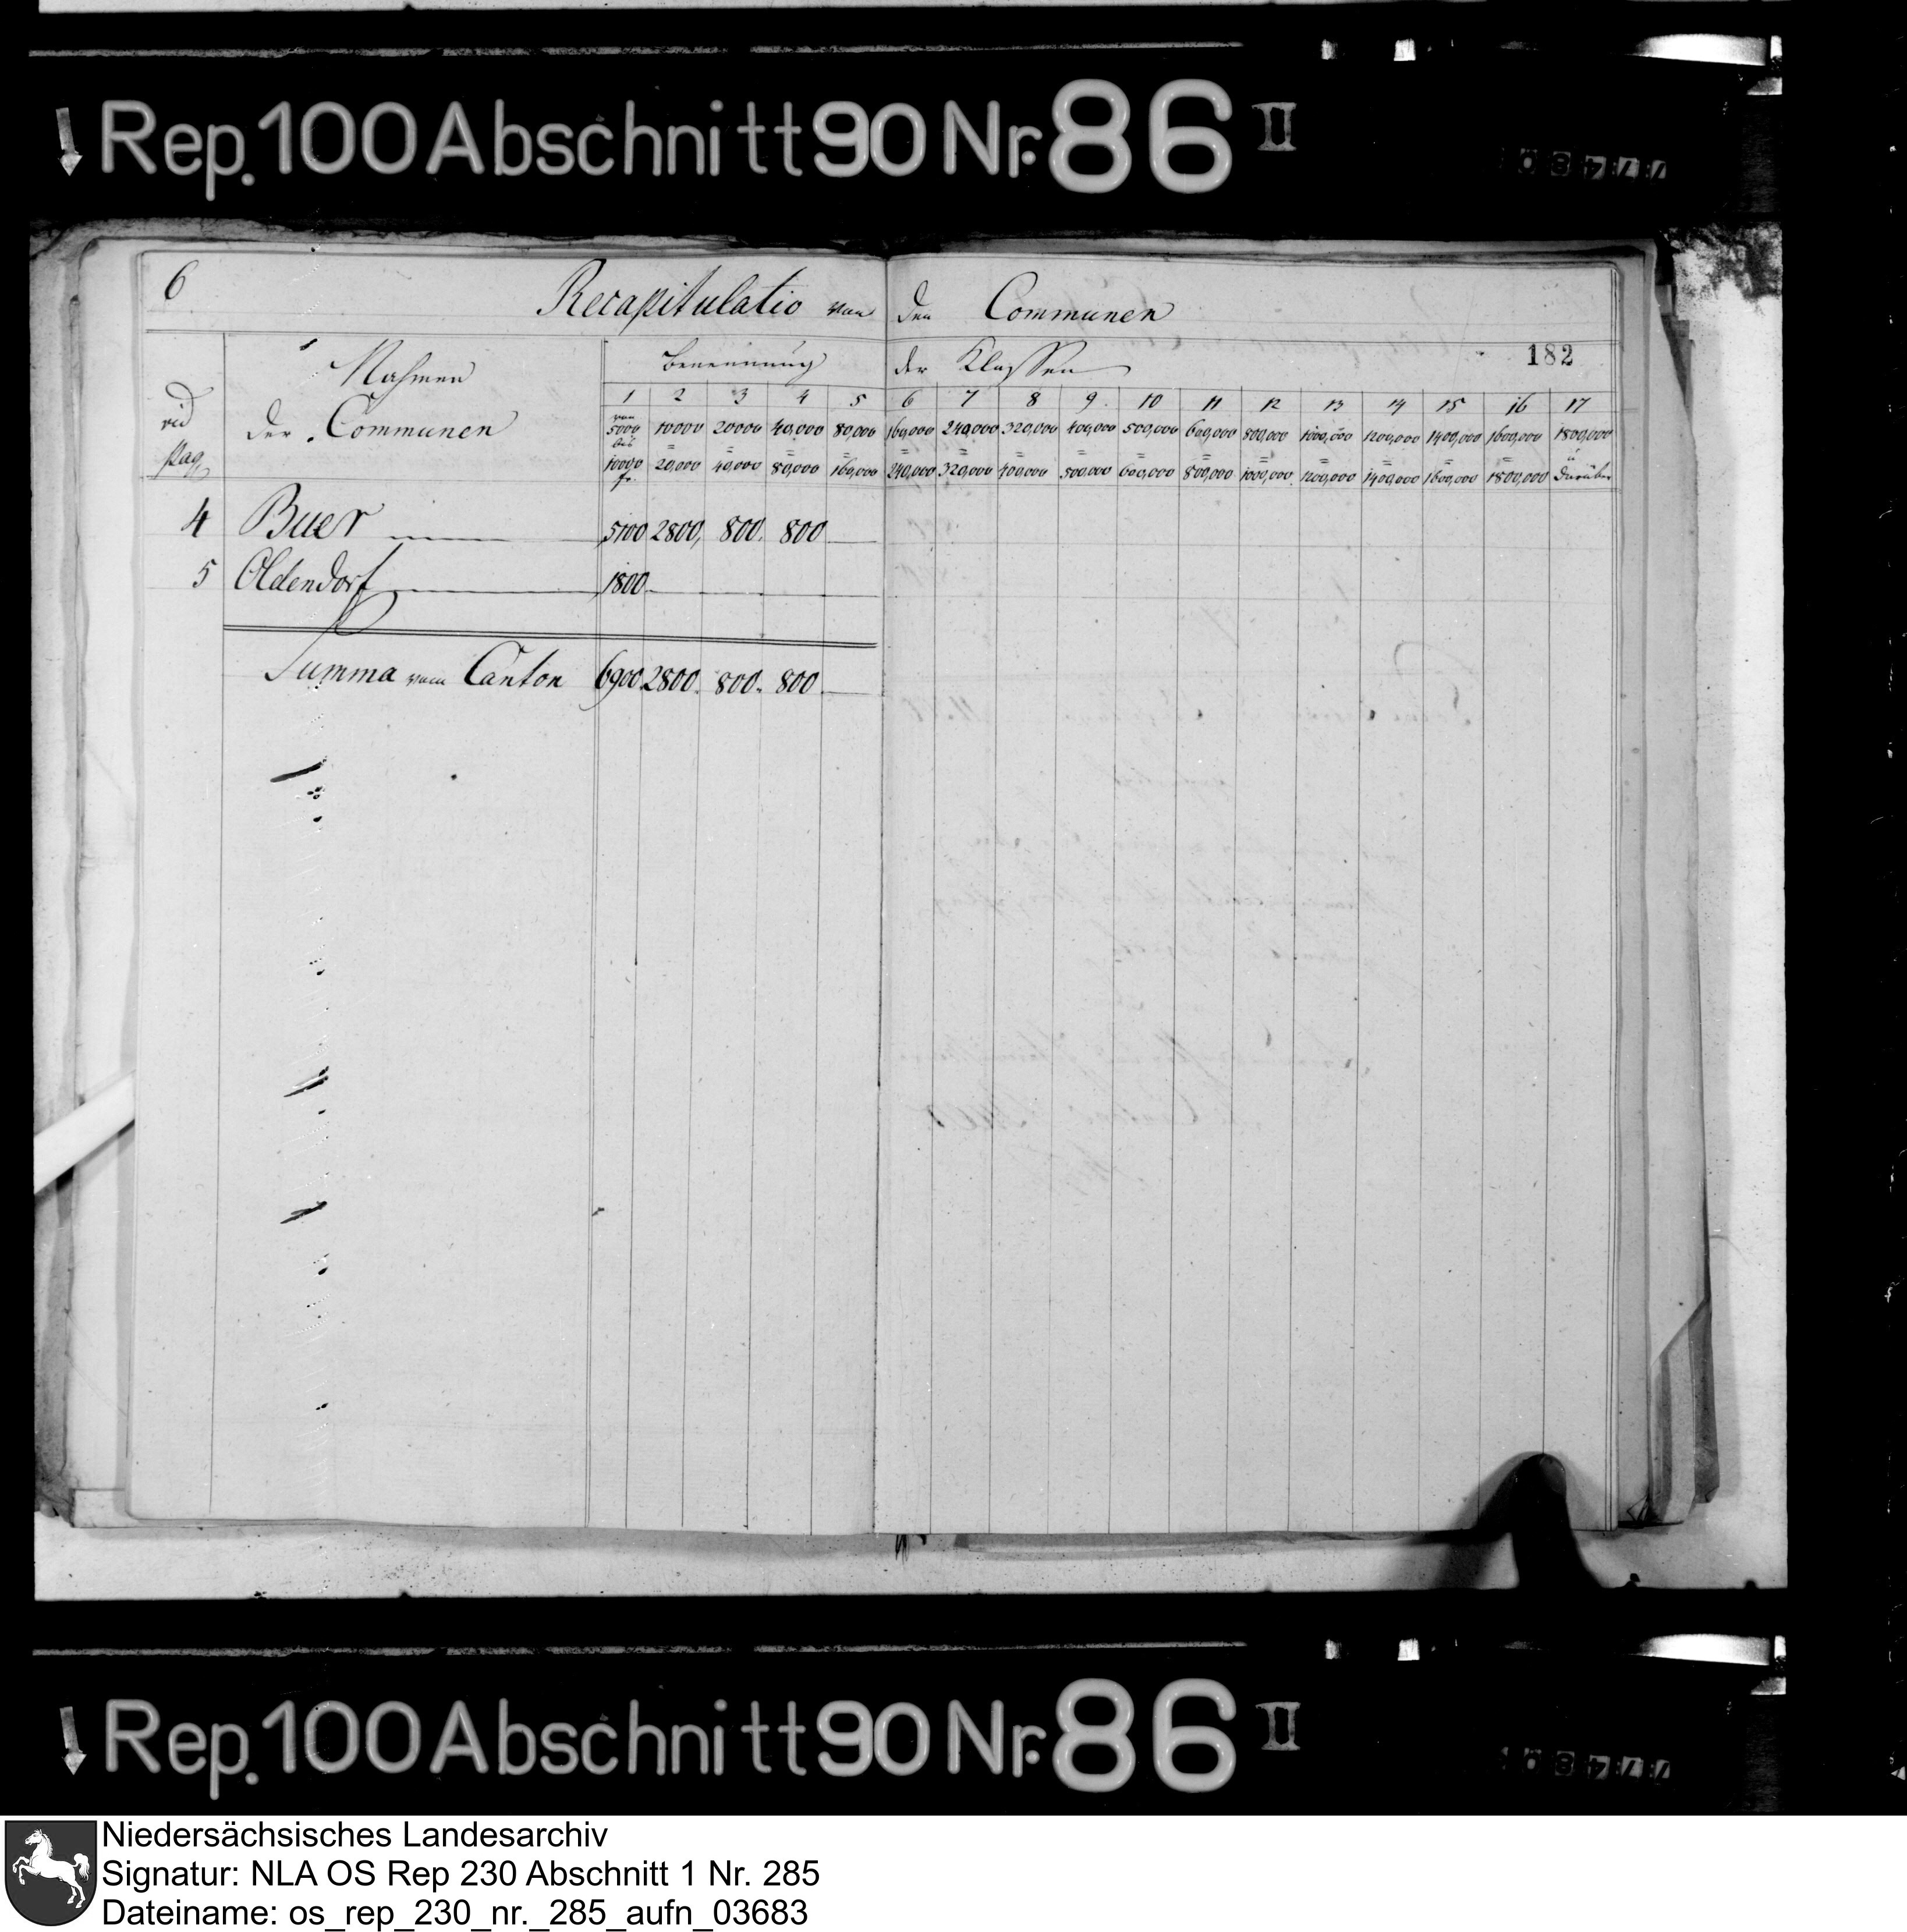 Rep. 100 Abschnitt 90 Nr. 86 II
6 Recapitulatio von den Communen
Nahmen Benennung der Klassen 182
vid 1 2 3 4 5 6 7 8 9. 10 11 12 13 14 15 16 17
der Communen von 5000 10000 20000 40,000 80,000 160,000 240,000 320,000 400,000 500,000 600,000 800,000 1000,000 1200,000 1400,000 1600,000 1800,000
bis = = = = = = = = = = = = = = = u
Pag. 10000 fr. 20,000 40,000 80,000 160,000 240,000 320,000 400,000 500,000 600,000 800,000 1000,000 1200,000 1400,000 1600,000 1800,000 darüber
4 Buer 5100 2800, 800. 800
5 Oldendorf 1800.
Summa vom Canton 6900. 2800. 800. 800
Rep. 100 Abschnitt 90 Nr. 86 II
Niedersächsisches Landesarchiv
Signatur: NLA OS Rep 230 Abschnitt 1 Nr. 285
Dateiname: os_rep_230_nr._285_aufn_03683